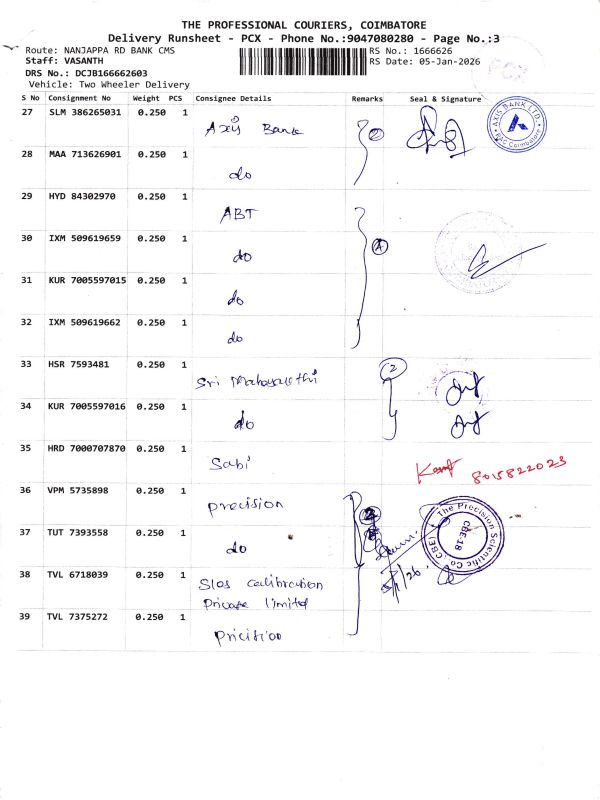 THE PROFESSIONAL COURIERS, COIMBATORE
Delivery Runsheet - PCX - Phone No.:9047080280 - Page No.:3
Route: NANJAPPA RD BANK CMS
Staff: VASANTH
DRS No.: DCJB166662603
Vehicle: Two Wheeler Delivery
RS No.: 1666626
RS Date: 05-Jan-2026
PCX
S No Consignment No Weight PCS Consignee Details Remarks Seal & Signature
27 SLM 386265031 0.250 1 Axis Bank
AXIS BANK LTD. Coimbatore
28 MAA 713626901 0.250 1 do
29 HYD 84302970 0.250 1 ABT
30 IXM 509619659 0.250 1 do 4
31 KUR 7005597015 0.250 1 do
32 IXM 509619662 0.250 1 do
33 HSR 7593481 0.250 1 Sri 2
34 KUR 7005597016 0.250 1 do
35 HRD 7000707870 0.250 1 Sabi
36 VPM 5735898 0.250 1 precision
The Precision Scientific Co. (CBE) CBE-18
37 TUT 7393558 0.250 1 do
38 TVL 6718039 0.250 1 Sios calibration
Private limited
39 TVL 7375272 0.250 1 pricision